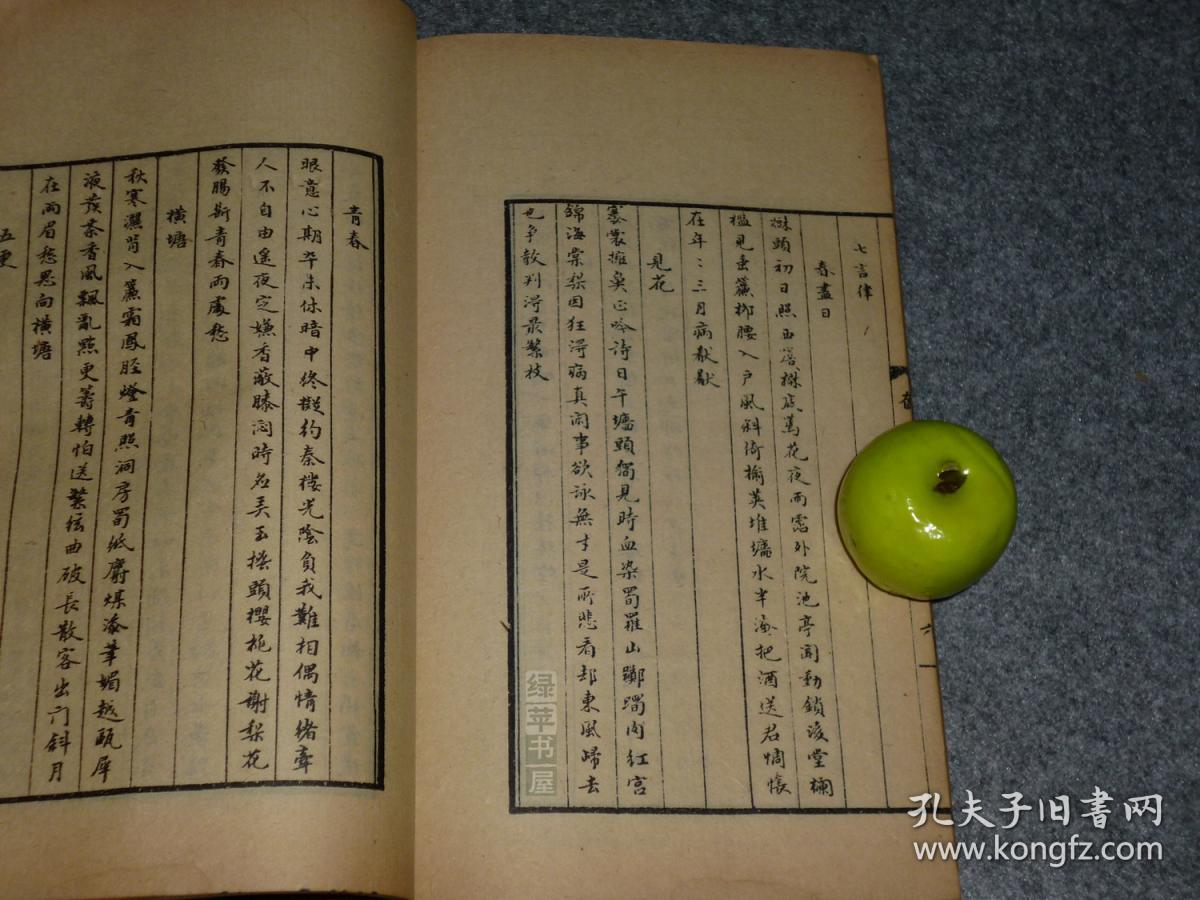 七言律
春盡日
樹頭初日照西簷樹底蔫花夜雨霑外院池亭聞動鎖後堂欄
檻見垂簾柳腰入户風斜倚榆莢堆墻水半淹把酒送君惆悵
在年：三月病猒猒
見花
褰裳擁鼻正吟詩日午墻頭獨見時血染蜀羅山躑躅肉紅宮
錦海棠梨因狂得病真閑事欲詠無才是所悲看却東風歸去
也爭教判得最繁枝
青春
眼意心期卒未休暗中終擬約秦樓光陰負我難相偶情緒牽
人不自由遙夜定嫌香蔽膝悶時應弄玉搔頭櫻桃花謝梨花
發腸斷青春兩處愁
橫塘
秋寒灑背入簾霜鳳脛燈青照洞房蜀紙麝煤添筆媚越甌犀
液發茶香風飄亂點更籌轉怕送繁弦曲破長散客出門斜月
在兩眉愁思向橫塘
五更
六
绿苹书屋
孔夫子旧书网
www.kongfz.com